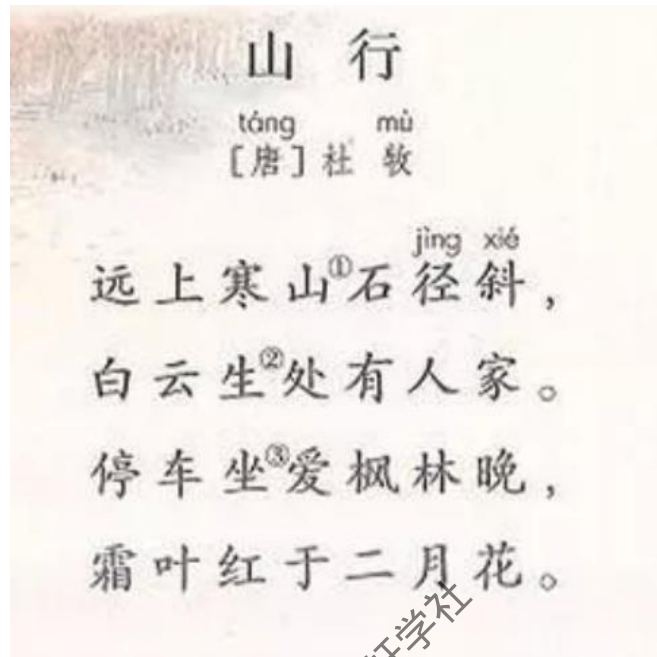 山行
táng mù
[唐]杜牧
jìng xié
远上寒山①石径斜，
白云生②处有人家。
停车坐③爱枫林晚，
霜叶红于二月花。
轩学社